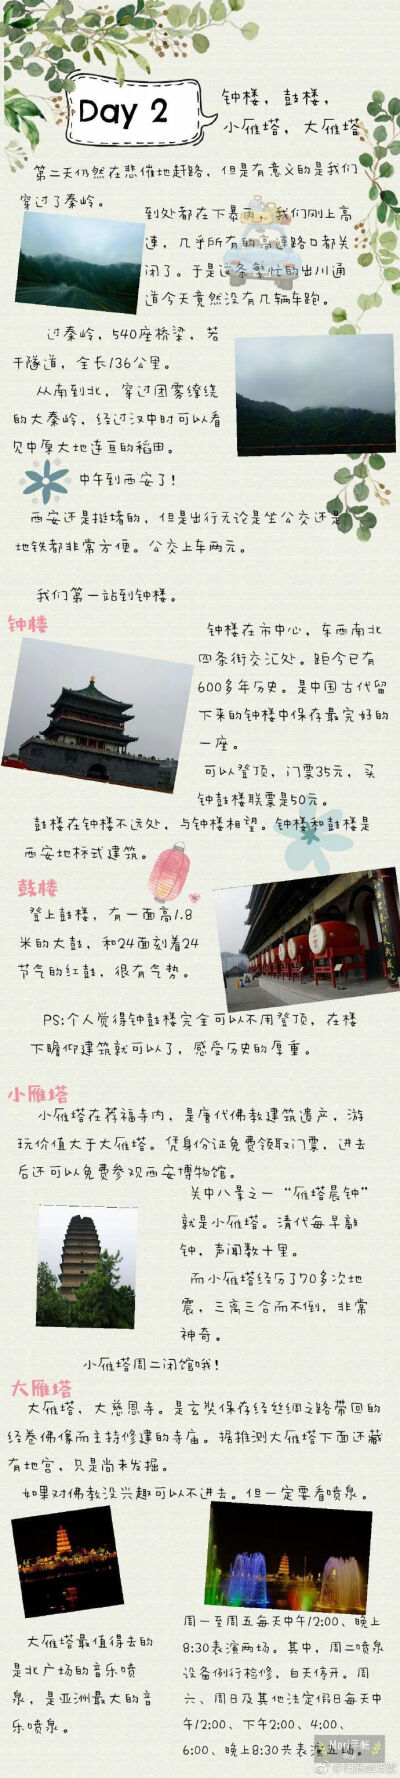 Day 2
钟楼，鼓楼，
小雁塔，大雁塔
第二天仍然在悲催地赶路，但是有意义的是我们
穿过了秦岭。
到处都在下暴雨，我们刚上高
速，几乎所有的高速路口都关
闭了。于是这条繁忙的出川通
道今天竟然没有几辆车跑。
过秦岭，540座桥梁，若
干隧道，全长136公里。
从南到北，穿过团雾缭绕
的大秦岭，经过汉中时可以看
见中原大地连亘的稻田。
中午到西安了！
西安还是挺堵的，但是出行无论是坐公交还是
地铁都非常方便。公交上车两元。
我们第一站到钟楼。
钟楼
钟楼在市中心，东西南北
四条街交汇处。距今已有
600多年历史。是中国古代留
下来的钟楼中保存最完好的
一座。
可以登顶，门票35元，买
钟鼓楼联票是50元。
鼓楼在钟楼不远处，与钟楼相望。钟楼和鼓楼是
西安地标式建筑。
鼓楼
登上鼓楼，有一面高1.8
米的大鼓，和24面刻着24
节气的红鼓，很有气势。
PS:个人觉得钟鼓楼完全可以不用登顶，在楼
下瞻仰建筑就可以了，感受历史的厚重。
小雁塔
小雁塔在荐福寺内，是唐代佛教建筑遗产，游
玩价值大于大雁塔。凭身份证免费领取门票，进去
后还可以免费参观西安博物馆。
关中八景之一“雁塔晨钟”
就是小雁塔。清代每早敲
钟，声闻数十里。
而小雁塔经历了70多次地
震，三离三合而不倒，非常
神奇。
小雁塔周二闭馆哦！
大雁塔
大雁塔，大慈恩寺。是玄奘保存经丝绸之路带回的
经卷佛像而主持修建的寺庙。据推测大雁塔下面还藏
有地宫，只是尚未发掘。
如果对佛教没兴趣可以不进去。但一定要看喷泉。
大雁塔最值得去的
是北广场的音乐喷
泉，是亚洲最大的音
乐喷泉。
周一至周五每天中午12:00、晚上
8:30表演两场。其中，周二喷泉
设备例行检修，白天停开。周
六、周日及其他法定假日每天中
午12:00、下午2:00、4:00、
6:00、晚上8:30共表演五场。
Mori手帐